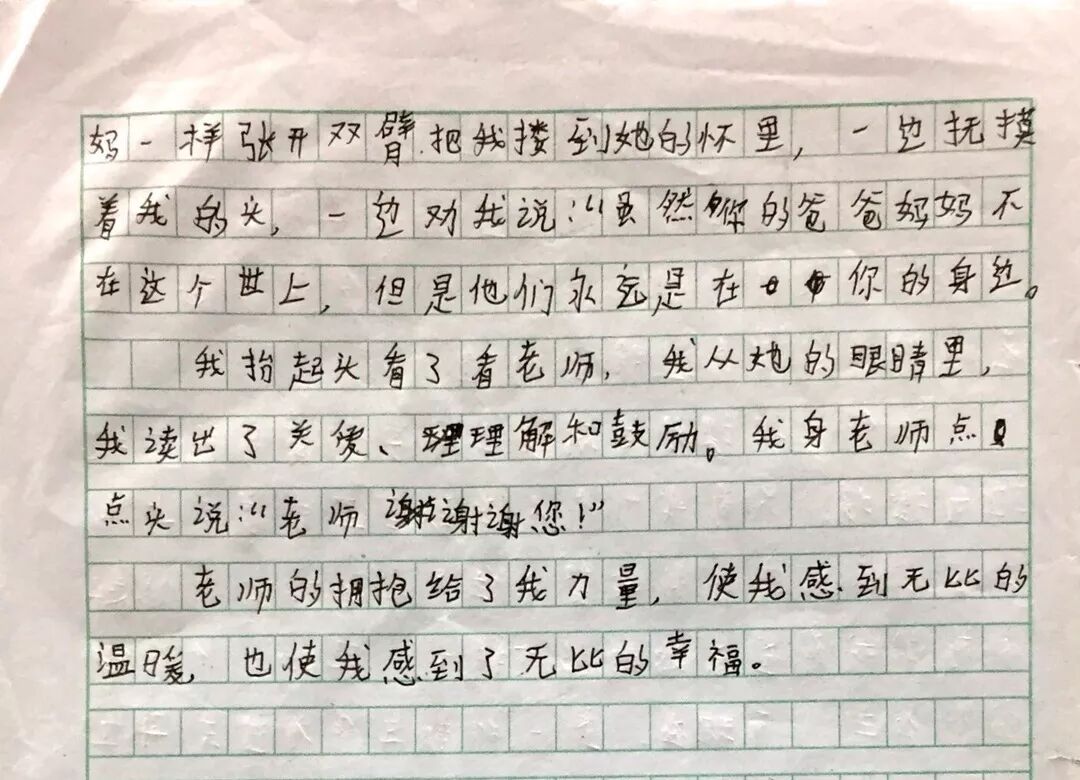 妈一样张开双臂.把我搂到她的怀里，一边抚摸
着我的头，一边劝我说：“虽然你的爸爸妈妈不
在这个世上，但是他们永远是在你的身边。
我抬起头看了看老师，我从她的眼睛里，
我读出了关爱、理解和鼓励。我身老师点
点头说：“老师谢谢谢您！”
老师的拥抱给了我力量，使我感到无比的
温暖，也使我感到了无比的幸福。